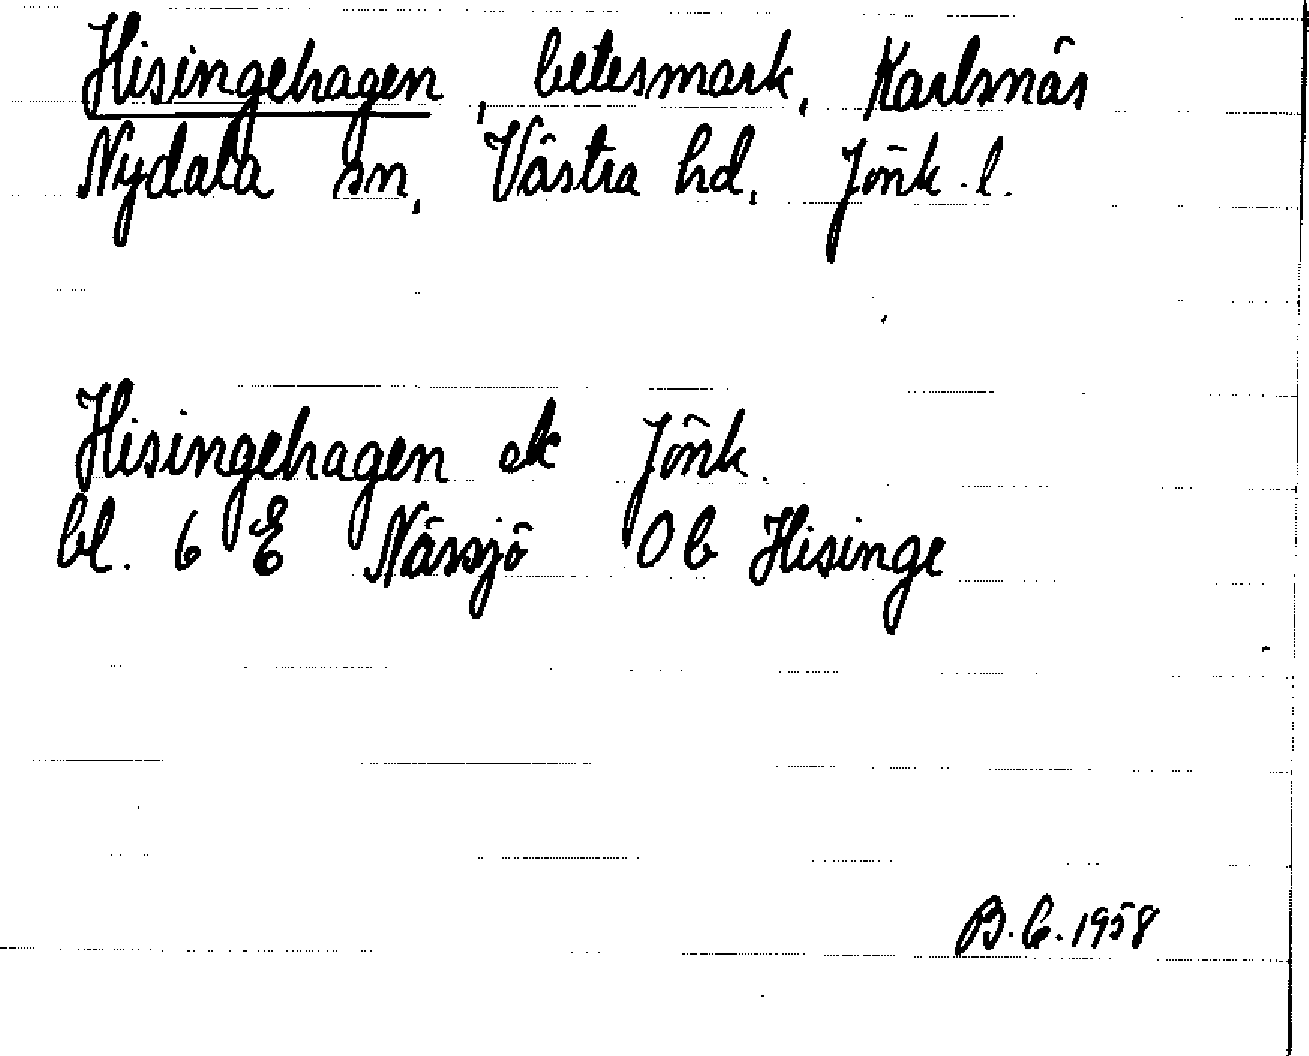 Hisingehagen, betesmark, Karlsnäs
Nydala sn, Västra hd, Jönk. l.
Hisingehagen ek Jönk.
bl. 6 E Nässjö 0 b Hisinge
B.G. 1958